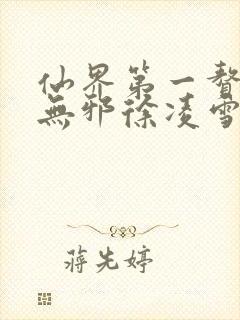 仙界第一贅
無邪徐凌雪
蔣先婷